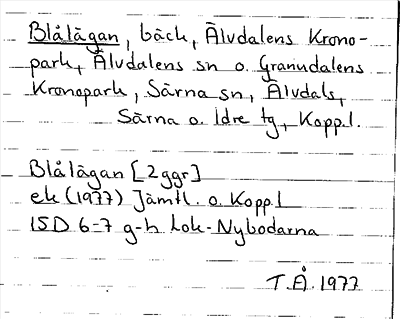 Blålägan, bäck, Älvdalens Krono-
park, Älvdalens sn o. Granudalens
Kronopark, Särna sn, Älvdals,
Särna o. Idre tg, Kopp.l.
Blålägan [2ggr]
ek (1977) Jämtl. o. Kopp.l
15D 6-7 g-h Lok-Nybodarna
T.Å. 1977